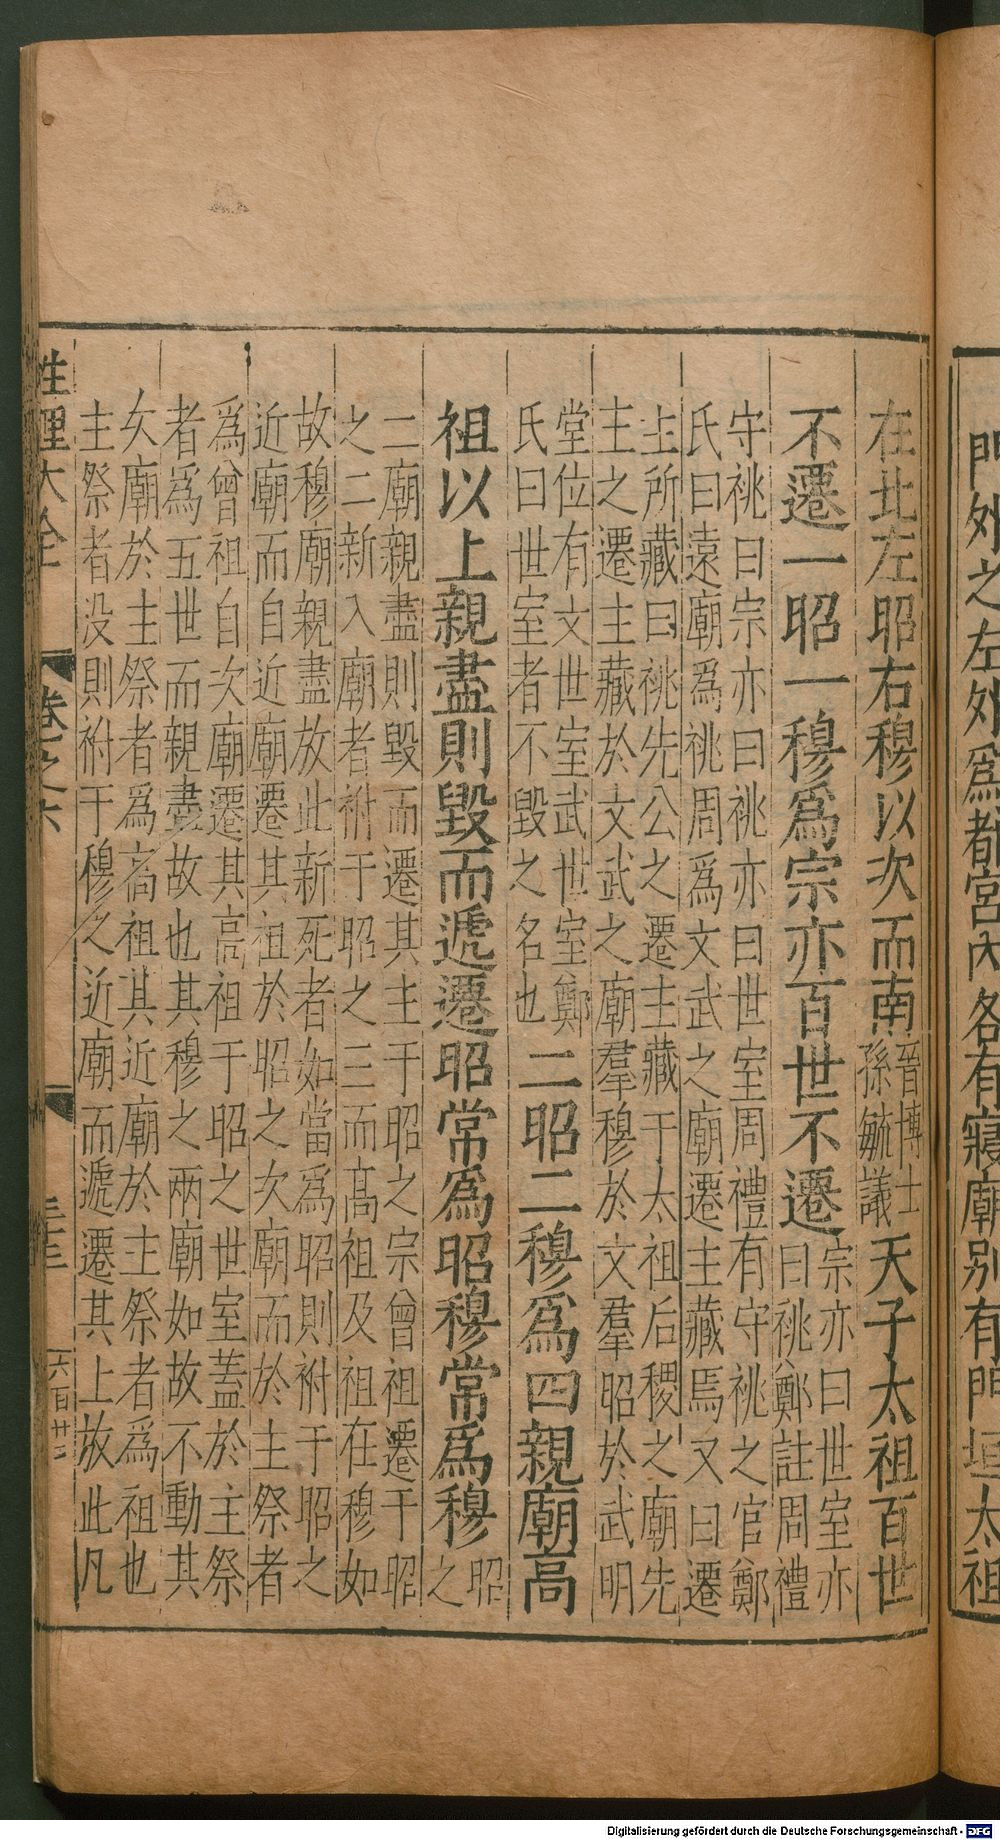 門外之左外爲都宮內各有寢廟别有門垣太祖
在北左昭右穆以次而南
晉博士
孫毓議
天子太祖百世
不遷一昭一穆爲宗亦百世不遷
宗亦曰世室亦
曰祧鄭註周禮
守祧曰宗亦曰祧亦曰世室周禮有守祧之官鄭
氏曰遠廟爲祧周爲文武之廟遷主藏焉又曰遷
主所藏曰祧先公之遷主藏于太祖后稷之廟先
主之遷主藏於文武之廟羣穆於文羣昭於武明
堂位有文世室武世室鄭
氏曰世室者不毀之名也
二昭二穆爲四親廟高
祖以上親盡則毀而遞遷昭常爲昭穆常爲穆
昭
之
二廟親盡則毀而遷其主于昭之宗曾祖遷于昭
之二新入廟者祔于昭之三而高祖及祖在穆如
故穆廟親盡放此新死者如當爲昭則祔于昭之
近廟而自近廟遷其祖於昭之次廟而於主祭者
爲曾祖自次廟遷其高祖于昭之世室蓋於主祭
者爲五世而親盡故也其穆之兩廟如故不動其
次廟於主祭者爲高祖其近廟於主祭者爲祖也
主祭者没則祔于穆之近廟而遞遷其上放此凡
性理大全 卷之六
六百廿二
Digitalisierung gefördert durch die Deutsche Forschungsgemeinschaft - DFG